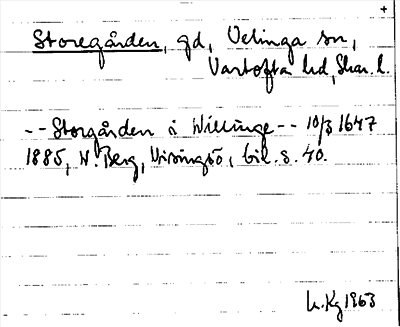 +
Storegården, gd, Velinga sn,
Vartofta hd, Skar. l.
-- Storgården i Willinge -- 10/3 1647
1885, W. Berg, Visingsö, bil. s. 40.
L. Kg 1963